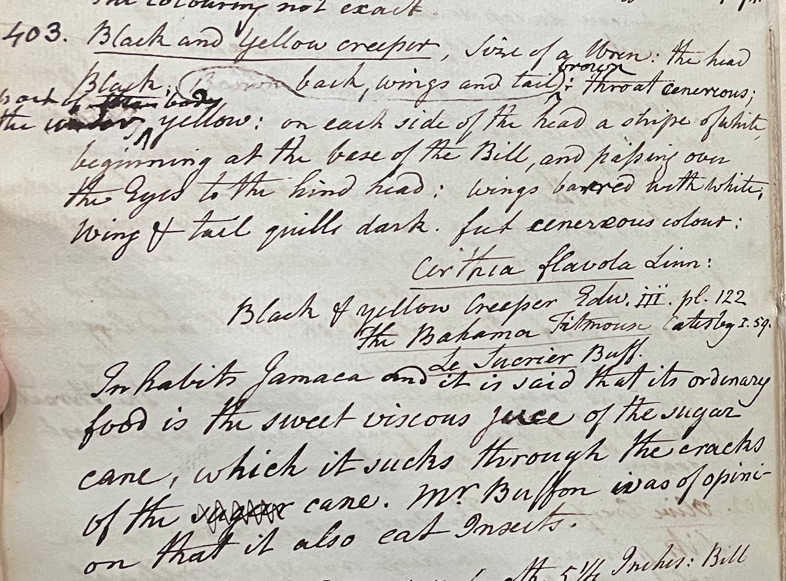 The colouring not exact.
403. Black and Yellow creeper, Size of a Wren: the head
Black; Brown back, wings and tail brown: throat cenerous;
part of body
the under yellow: on each side of the head a stripe of white,
beginning at the base of the Bill, and passing over
the Eyes to the hind head: wings barred with white;
wing & tail quills dark. feet cenereous colour:
Cirthia flavola Linn:
Black & yellow Creeper Edw. iii. pl. 122
the Bahama Titmouse Catesby I. 59.
Le Sucrier Buff.
Inhabits Jamaca and it is said that its ordinary
food is the sweet viscous juce of the sugar
cane, which it sucks through the cracks
of the sugar cane. Mr Buffon was of opini-
on that it also eat Insects.
5½ Inches: Bill